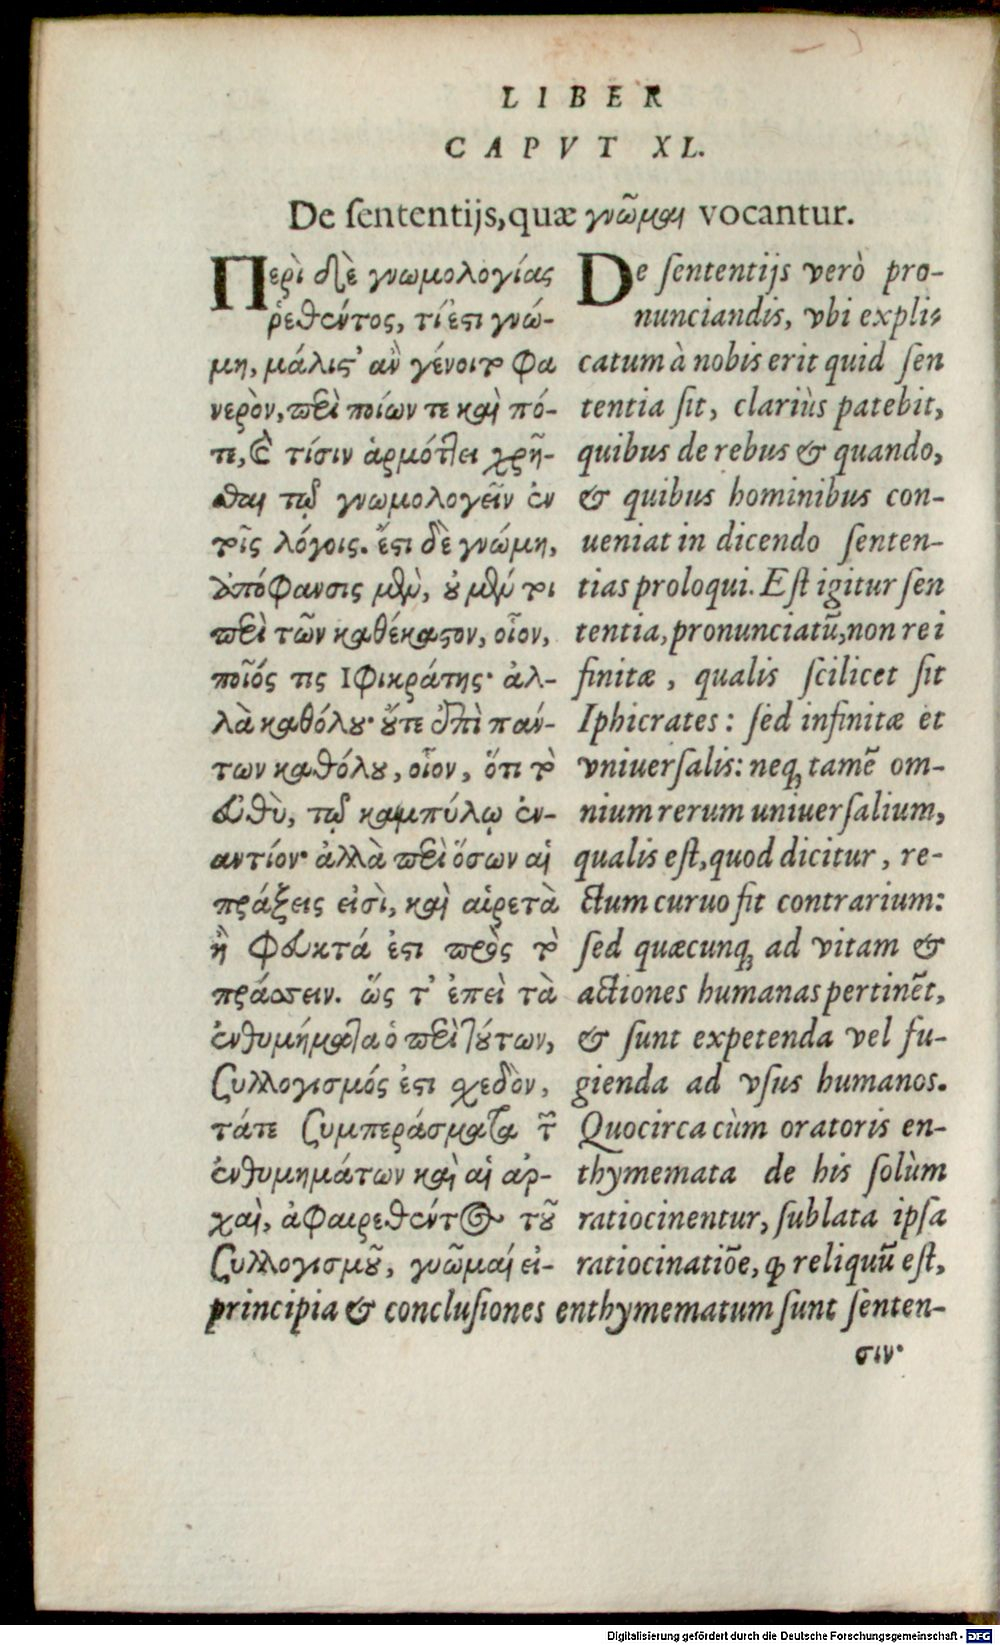 LIBER
CAPVT XL.
De ſententijs, quæ γνῶμαι vocantur.
Περὶ δὲ γνωμολογίας
ῥεθέντος, τί ἐστι γνώ-
μη, μάλιστ' ἂν γένοιτο φα
νερὸν, περὶ ποίων τε καὶ πό-
τε, καὶ τίσιν ἁρμόττει χρῆ-
σθαι τῷ γνωμολογεῖν ἐν
τοῖς λόγοις. ἔστι δὲ γνώμη,
ἀπόφανσις μὲν, οὐ μέντοι
περὶ τῶν καθέκαστον, οἷον,
ποῖός τις Ιφικράτης· ἀλ-
λὰ καθόλου· οὔτε ἐπὶ πάν-
των καθόλου, οἷον, ὅτι τὸ
εὐθὺ, τῷ καμπύλῳ ἐν-
αντίον· ἀλλὰ περὶ ὅσων αἱ
πράξεις εἰσὶ, καὶ αἱρετὰ
ἢ φευκτά ἐστι πρὸς τὸ
πράσσειν. ὥς τ' ἐπεὶ τὰ
ἐνθυμήματα ὁ περὶ τούτων,
συλλογισμός ἐστι σχεδὸν,
τάτε συμπεράσματα τῶν
ἐνθυμημάτων καὶ αἱ ἀρ-
χαὶ, ἀφαιρεθέντος τοῦ
συλλογισμοῦ, γνῶμαί εἰ-
De ſententijs verò pro-
nunciandis, vbi expli-
catum à nobis erit quid ſen
tentia ſit, clariùs patebit,
quibus de rebus & quando,
& quibus hominibus con-
ueniat in dicendo ſenten-
tias proloqui. Eſt igitur ſen
tentia, pronunciatū, non rei
finitæ, qualis ſcilicet ſit
Iphicrates: ſed infinitæ et
vniuerſalis: neq; tamē om-
nium rerum uniuerſalium,
qualis eſt, quod dicitur, re-
ctum curuo ſit contrarium:
ſed quæcunq; ad vitam &
actiones humanas pertinēt,
& ſunt expetenda vel fu-
gienda ad vſus humanos.
Quocirca cùm oratoris en-
thymemata de his ſolùm
ratiocinentur, ſublata ipſa
ratiocinatiōe, ꝙ reliquū eſt,
principia & concluſiones enthymematum ſunt ſenten-
σιν·
Digitalisierung gefördert durch die Deutsche Forschungsgemeinschaft - DFG